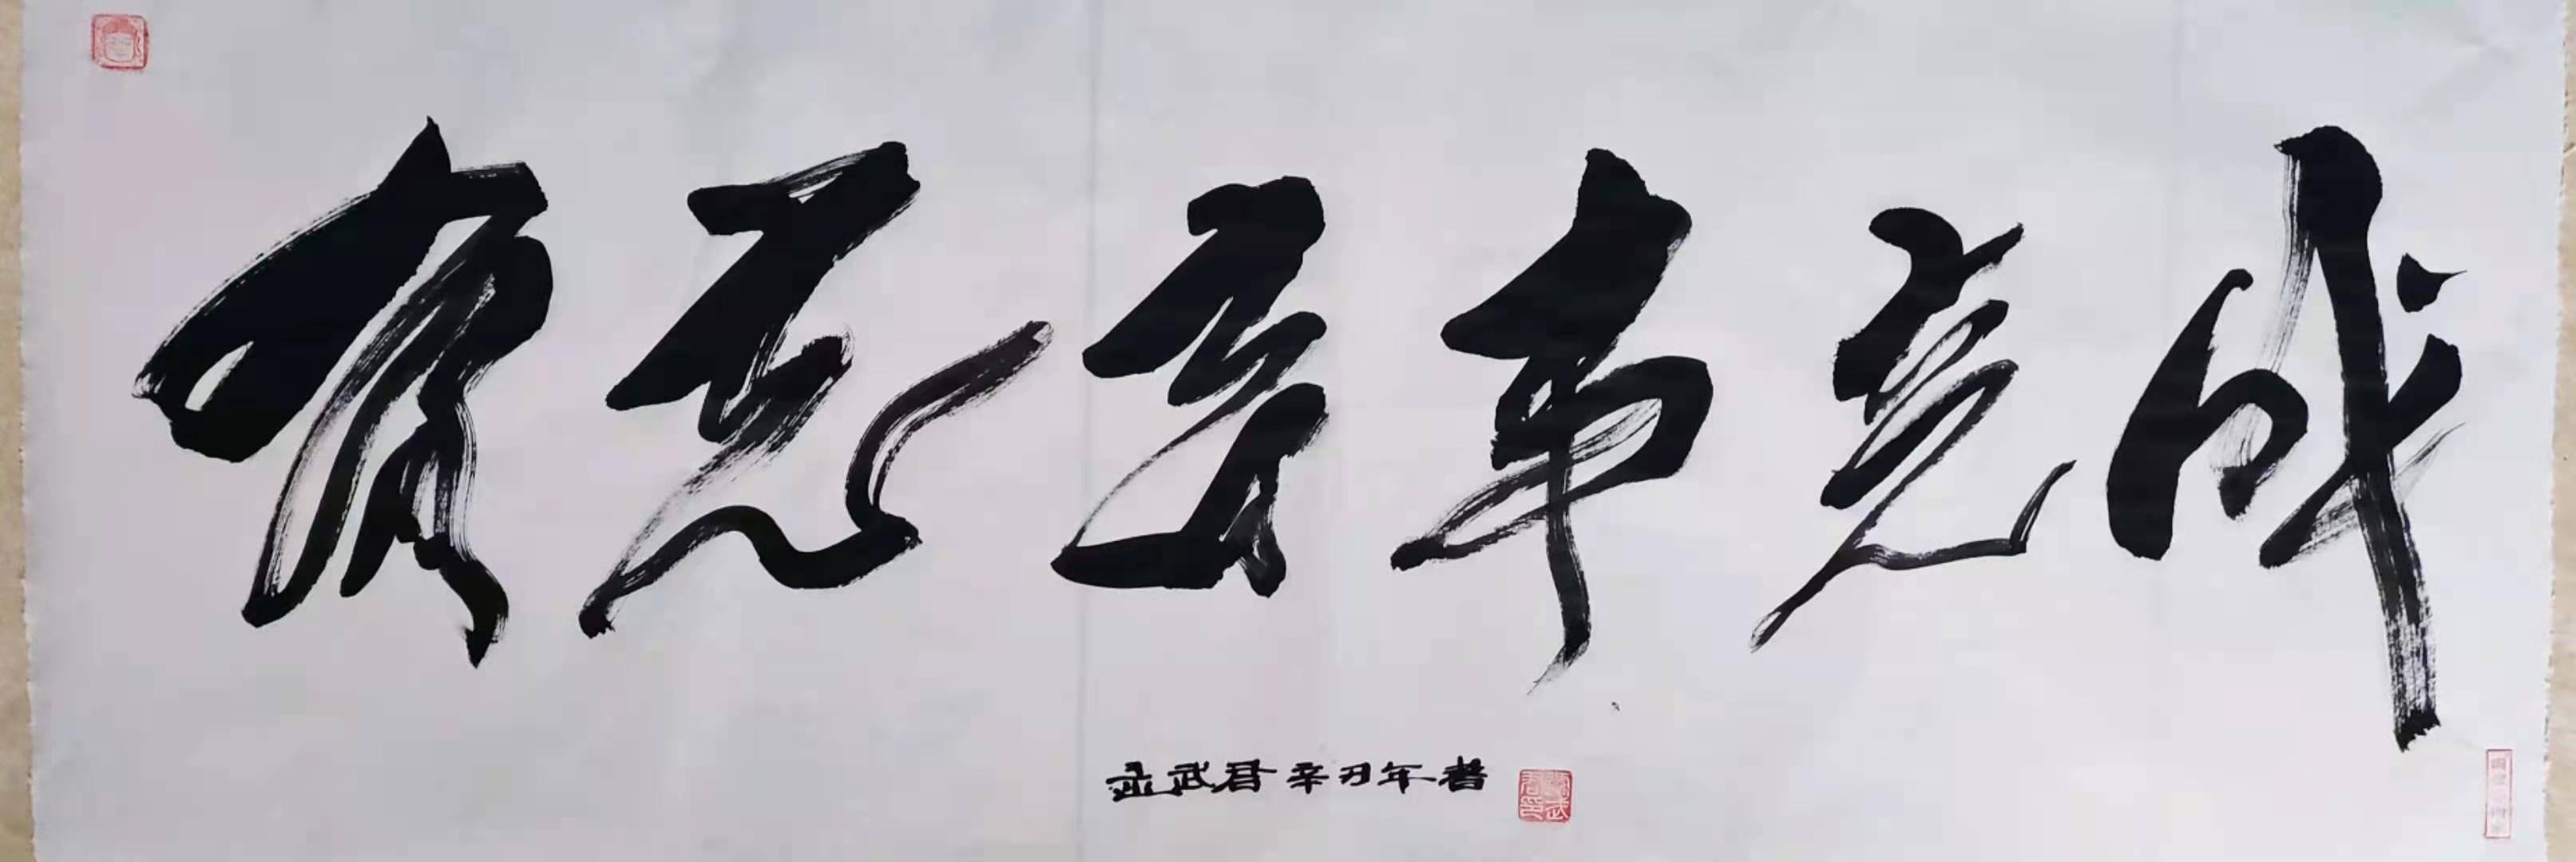 有志者事竟成
武君辛丑年書